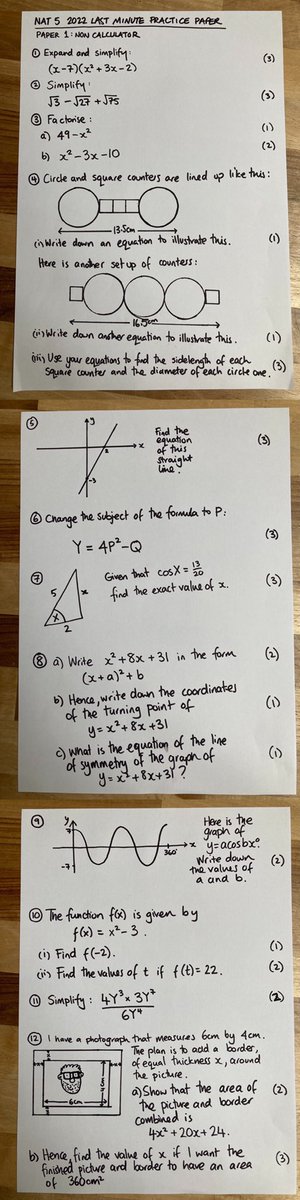 NAT 5 2022 LAST MINUTE PRACTICE PAPER
PAPER 1: NON CALCULATOR
① Expand and simplify:
(x-7)(x²+3x-2) (3)
② Simplify:
√3 - √27 + √75 (3)
③ Factorise:
a) 49-x² (1)
b) x²-3x-10 (2)
④ Circle and square counters are lined up like this:
13.5cm
(i) Write down an equation to illustrate this. (1)
Here is another set up of counters:
16.5cm
(ii) Write down another equation to illustrate this. (1)
(iii) Use your equations to find the sidelength of each
square counter and the diameter of each circle one. (3)
⑤ y
x
2
-3
Find the
equation
of this
straight
line. (3)
⑥ Change the subject of the formula to P:
Y = 4P²-Q (3)
⑦ 5
x
X
2
Given that cosX = 13/20
find the exact value of x. (3)
⑧ a) Write x²+8x+31 in the form (2)
(x+a)²+b
b) Hence, write down the coordinates
of the turning point of (1)
y=x²+8x+31
c) What is the equation of the line
of symmetry of the graph of (1)
y=x²+8x+31?
⑨ y
7
-7
360°
x
Here is the
graph of
y=acosbx°.
Write down
the values of (2)
a and b.
⑩ The function f(x) is given by
f(x) = x²-3.
(i) Find f(-2). (1)
(ii) Find the values of t if f(t)=22. (2)
⑪ Simplify: 4Y³ × 3Y⁷ / 6Y⁴
⑫ I have a photograph that measures 6cm by 4cm.
The plan is to add a border,
of equal thickness x, around
the picture.
x
4cm
6cm
a) Show that the area of (2)
the picture and border
combined is
4x²+20x+24.
b) Hence, find the value of x if I want the
finished picture and border to have an area (3)
of 360cm²